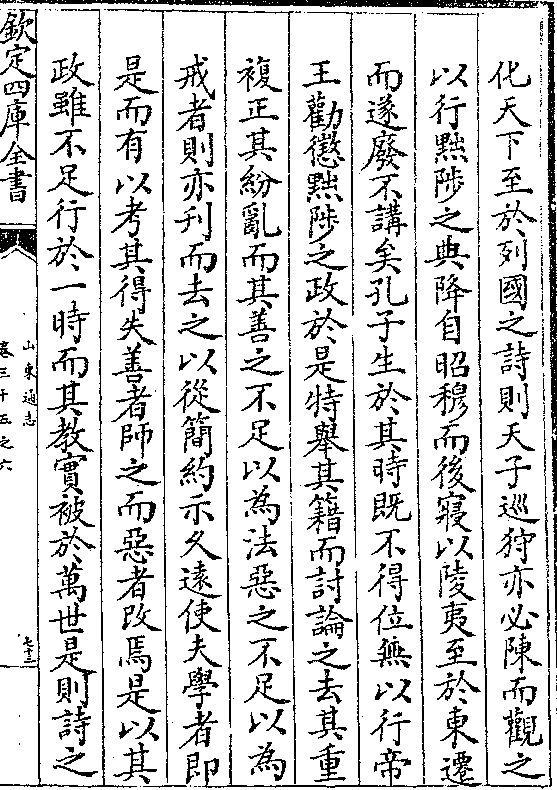 化天下至於列國之詩則天子巡狩亦必陳而觀之
以行黜陟之典降自昭穆而後寖以陵夷至於東遷
而遂廢不講矣孔子生於其時既不得位無以行帝
王勸懲黜陟之政於是特舉其籍而討論之去其重
複正其紛亂而其善之不足以為法惡之不足以為
戒者則亦刋而去之以從簡約示久遠使夫學者即
是而有以考其得失善者師之而惡者改焉是以其
政雖不足行於一時而其教實被於萬世是則詩之
欽定四庫全書
山東通志
卷三十五之六
七十三